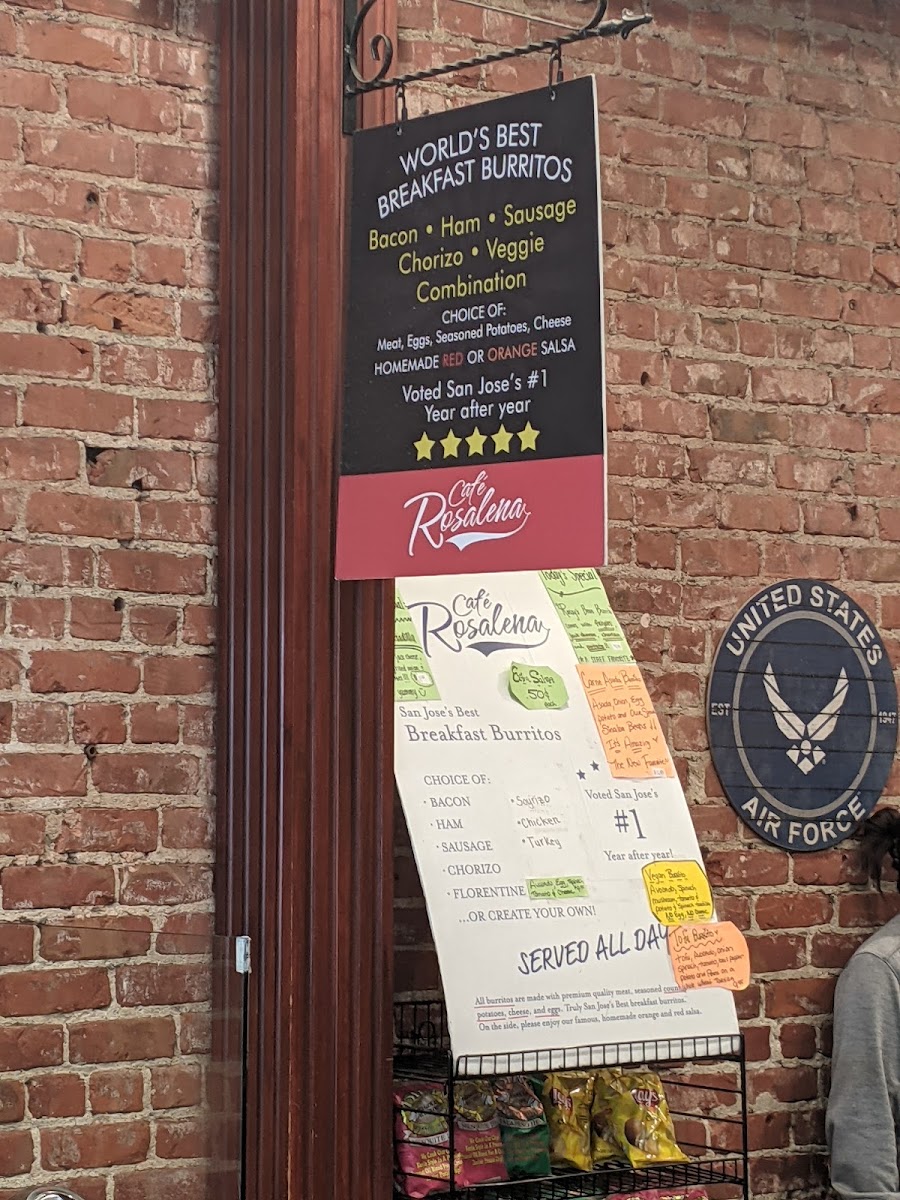 WORLD'S BEST
BREAKFAST BURRITOS
Bacon • Ham • Sausage
Chorizo • Veggie
Combination
CHOICE OF:
Meat, Eggs, Seasoned Potatoes, Cheese
HOMEMADE RED OR ORANGE SALSA
Voted San Jose's #1
Year after year
Café
Rosalena
Café
Rosalena
Today's Special
Salsa
.50¢
each
San Jose's Best
Breakfast Burritos
Carne Asada Burrito
Asada, Onion, Egg
Potato and Our
It's Amazing
The New Favorite
CHOICE OF:
• BACON
• HAM
• SAUSAGE
• CHORIZO
• FLORENTINE
...OR CREATE YOUR OWN!
• Soyrizo
• Chicken
• Turkey
Voted San Jose's
#1
Year after year!
Vegan Burrito
Avocado, Spinach
mushroom, tomato &
potato & Spinach
NO Egg, NO
Tofu Burrito
tofu, Avocado, onion
spinach, tomato, bell pepper
SERVED ALL DAY
All burritos are made with premium quality meat, seasoned
potatoes, cheese, and eggs. Truly San Jose's Best breakfast burritos.
On the side, please enjoy our famous, homemade orange and red salsa.
UNITED STATES
EST 1947
AIR FORCE